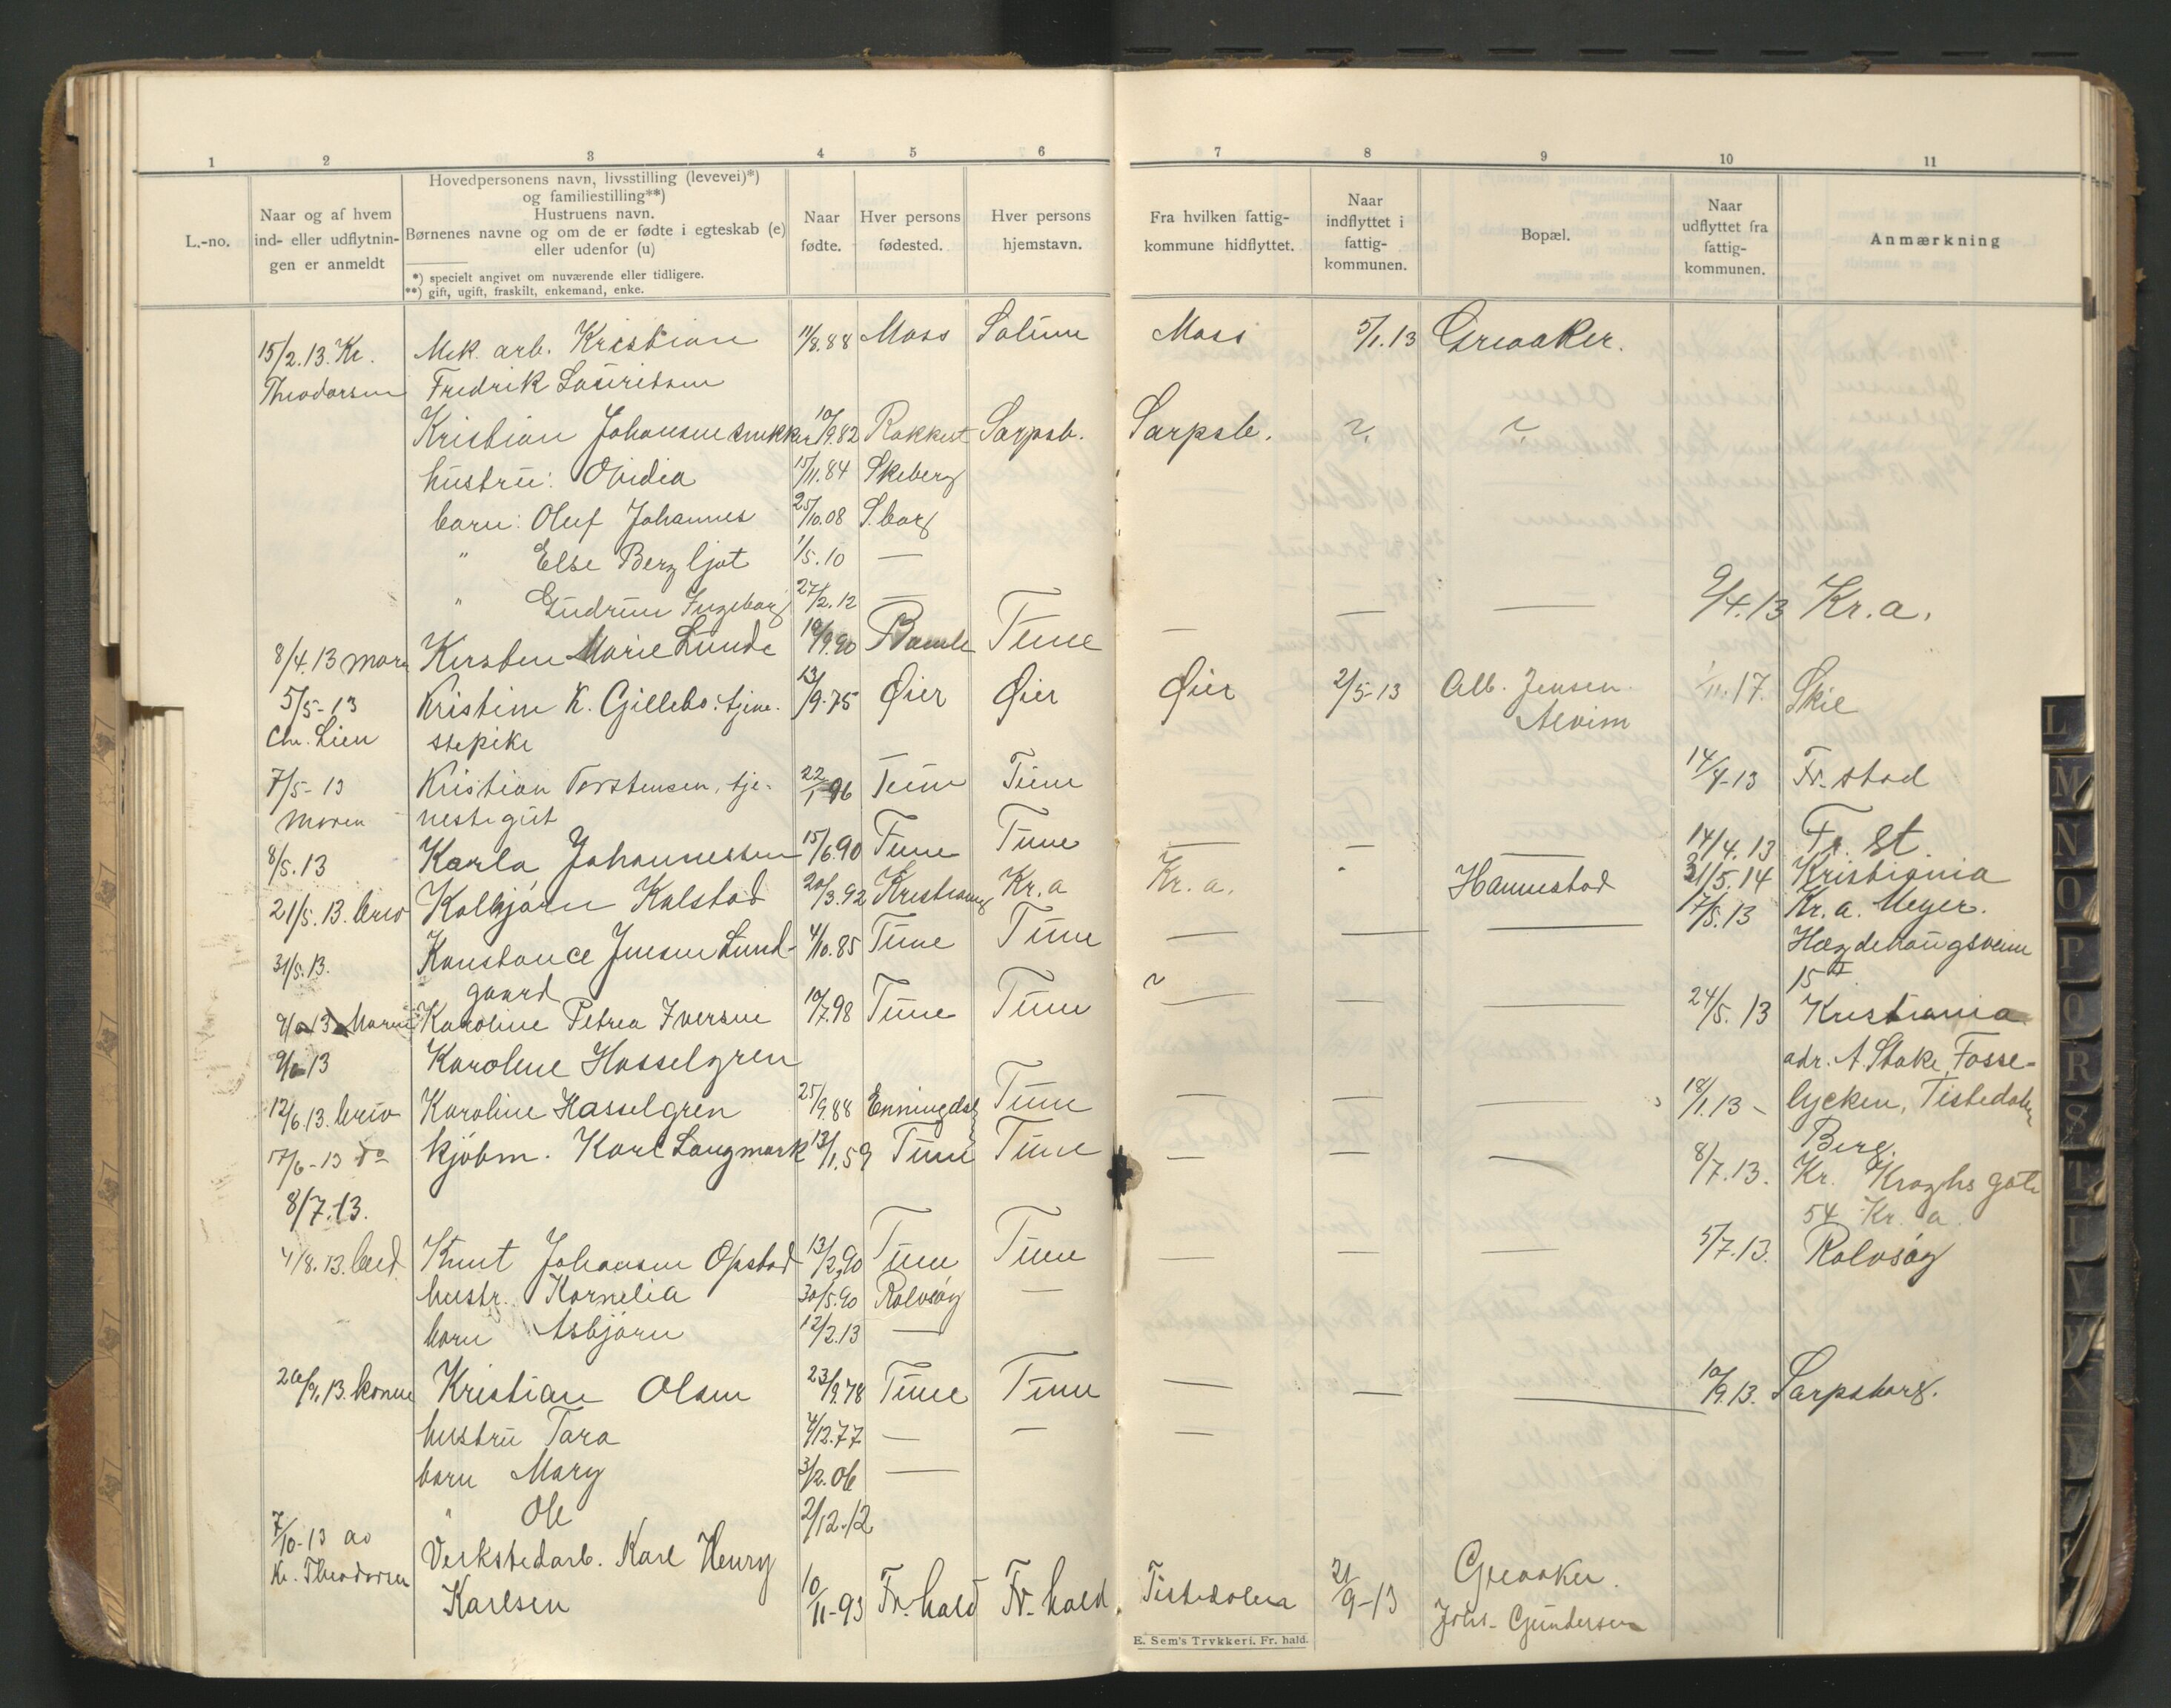 1 2 3 4 5 6 7 8 9 10 11
L.-no.
Naar og af hvem
ind- eller udflytnin-
gen er anmeldt
Hovedpersonens navn, livsstilling (levevei)*)
og familiestilling**)
Hustruens navn.
Børnenes navne og om de er fødte i egteskab (e)
eller udenfor (u)
*) specielt angivet om nuværende eller tidligere.
**) gift, ugift, fraskilt, enkemand, enke.
Naar
fødte.
Hver persons
fødested.
Hver persons
hjemstavn.
Fra hvilken fattig-
kommune hidflyttet.
Naar
indflyttet i
fattig-
kommunen.
Bopæl.
Naar
udflyttet fra
fattig-
kommunen.
Anmærkning
15/2.13. Kr. Mek. arb. Kristian 11/8.88 Moss Solum Moss 5/1.13 Greaaker.
Theodorsen Fredrik Lauritsen
Kristian Johansen snekker 10/9.82 Rakkest Sarpsb. Sarpsb. ?. ?.
hustru: Ovidia 15/11.84 Skeberg
barn: Oluf Johannes 25/10.08 S.borg
" Else Bergljot 1/5.10 —
" Gudrun Ingeborg 27/2.12 —
8/4.13 moren Kirsten Marie Lunde 10/9.90 Bamle Tune — — — 9/4.13 Kr.a.
5/5-13 Kristine K. Gillebo. tjene- 13/9.75 Øier Øier Øier 2/5-13 Alb. Jensen 1/11.17. Skie
Chr. Lien stepike Alvim
7/5-13 Kristian Torstensen, tje- 22/1 96 Tune Tune 14/4-13 Fr. stad
Moren nestegut
8/5.13 Karla Johannessen 15/6.90 Tune Tune — — — 14/4.13 Fr. st
21/5.13. brev Kolbjörn Kalstad 20/3.92 Kristiania Kr.a Kr.a. Hannestad 31/5.14 Kristiania
31/5.13. Konstance Jensen Lund- 4/10.85 Tune Tune — — — 17/5.13 Kr.a. Meyer.
gaard Hægdehaugsveien
15 II
Moren Karoline Petrea Iversen 10/7.98 Tune Tune — — — 24/5.13 Kristiania
13 Karoline Hasselgren adr. A. Stake, Fosse-
12/6.13. brev Karoline Hasselgren 25/9.88 Enningdal Tune — — — 18/1.13 - lycken, Tistedalen
Berg.
17/6-13 do Kjöbm. Karl Langmark 13/1.59 Tune Tune — — — 8/7.13. Kr. Kroghs gate
8/7.13. 54 Kr. a.
4/8.13. bud. Knut Johansen Opstad 13/2.90 Tune Tune — — — 5/7.13. Rolvsöy
hustr. Kornelia 30/5.90 Rolvsöy —
barn Asbjörn 12/2.13 —
20/9.13. konen Kristian Olsen 23/9.78 Tune Tune — — — 10/9.13. Sarpsborg.
hustru Tara 4/12.77 — — —
barn Mary 3/2.06 —
" Ole 2/12.12
7/10-13 av Verkstedarb. Karl Henry Greaaker.
Kr. Theodorsen Karlsen 10/11-93 Fr. hald Fr. hald Tistedalen 21/9-13 Johs. Gundersen
E. Sem's Trykkeri. Fr. hald.
L
M
N
O
P
Q
R
S
T
U
V
Y
X
Y